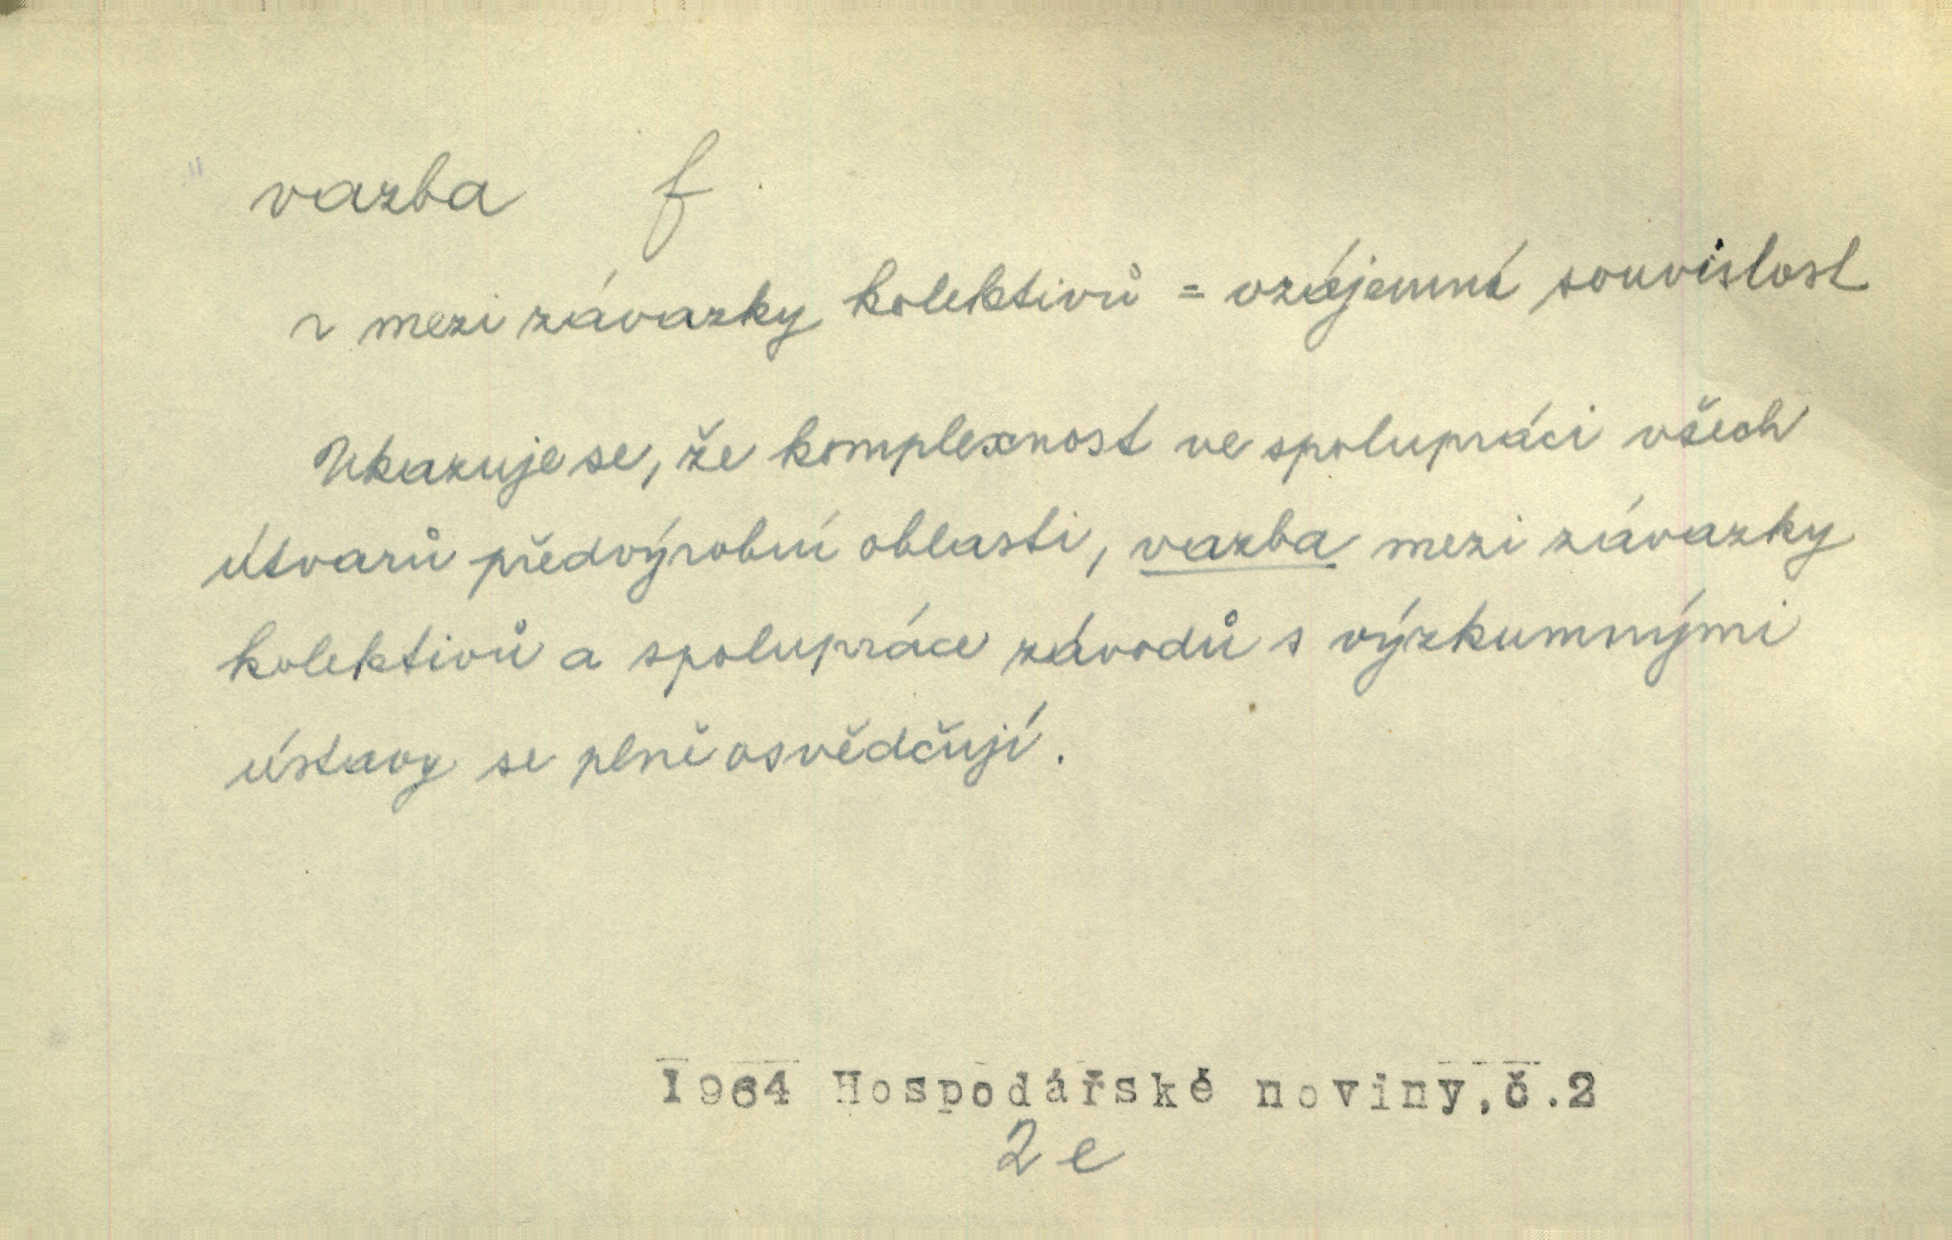 vazba f.
v mezi závazky kolektivů = vzájemná souvislost
Ukazuje se, že komplexnost ve spolupráci všech
útvarů předvýrobní oblasti, vazba mezi závazky
kolektivů a spolupráce závodů s výzkumnými
ústavy se plně osvědčují.
1964 Hospodářské noviny, č.2
2 e